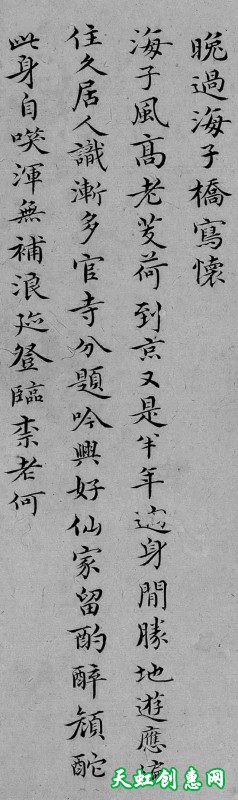 晚過海子橋寫懷
海子風高老芰荷到京又是半年過身閒勝地遊應
住久居人識漸多官寺分題吟興好仙家留酌醉顏酡
此身自咲渾無補浪迹登臨柰老何
天虹创惠网